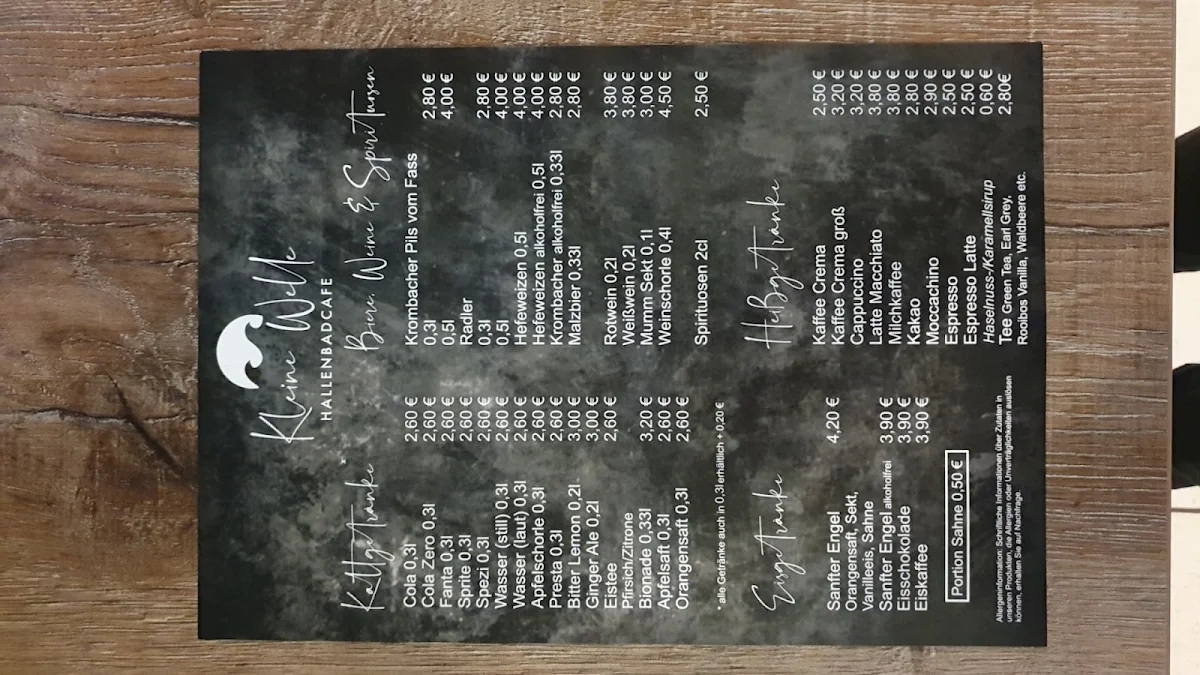 Kleine Welle
HALLENBADCAFE
Kaltgetränke*
Cola 0,3l 2,60 €
Cola Zero 0,3l 2,60 €
Fanta 0,3l 2,60 €
Sprite 0,3l 2,60 €
Spezi 0,3l 2,60 €
Wasser (still) 0,3l 2,60 €
Wasser (laut) 0,3l 2,60 €
Apfelschorle 0,3l 2,60 €
Presta 0,3l 2,60 €
Bitter Lemon 0,2l 3,00 €
Ginger Ale 0,2l 3,00 €
Eistee 2,60 €
Pfirsich/Zitrone
Bionade 0,33l 3,20 €
Apfelsaft 0,3l 2,60 €
Orangensaft 0,3l 2,60 €
* alle Getränke auch in 0,3l erhältlich + 0,20 €
Eisgetränke
Sanfter Engel 4,20 €
Orangensaft, Sekt,
Vanilleeis, Sahne
Sanfter Engel alkoholfrei 3,90 €
Eisschokolade 3,90 €
Eiskaffee 3,90 €
Portion Sahne 0,50 €
Allergeninformation: Schriftliche Informationen über Zutaten in
unseren Produkten, die Allergien oder Unverträglichkeiten auslösen
können, erhalten Sie auf Nachfrage.
Biere, Weine & Spirituosen
Krombacher Pils vom Fass
0,3l 2,80 €
0,5l 4,00 €
Radler
0,3l 2,80 €
0,5l 4,00 €
Hefeweizen 0,5l 4,00 €
Hefeweizen alkoholfrei 0,5l 4,00 €
Krombacher alkoholfrei 0,33l 2,80 €
Malzbier 0,33l 2,80 €
Rotwein 0,2l 3,80 €
Weißwein 0,2l 3,80 €
Mumm Sekt 0,1l 3,00 €
Weinschorle 0,4l 4,50 €
Spirituosen 2cl 2,50 €
Heißgetränke
Kaffee Crema 2,50 €
Kaffee Crema groß 3,20 €
Cappuccino 3,20 €
Latte Macchiato 3,80 €
Milchkaffee 3,80 €
Kakao 2,80 €
Moccachino 2,90 €
Espresso 2,50 €
Espresso Latte 2,50 €
Haselnuss-/Karamellsirup 0,60 €
Tee Green Tea, Earl Grey, 2,80€
Rooibos Vanilla, Waldbeere etc.